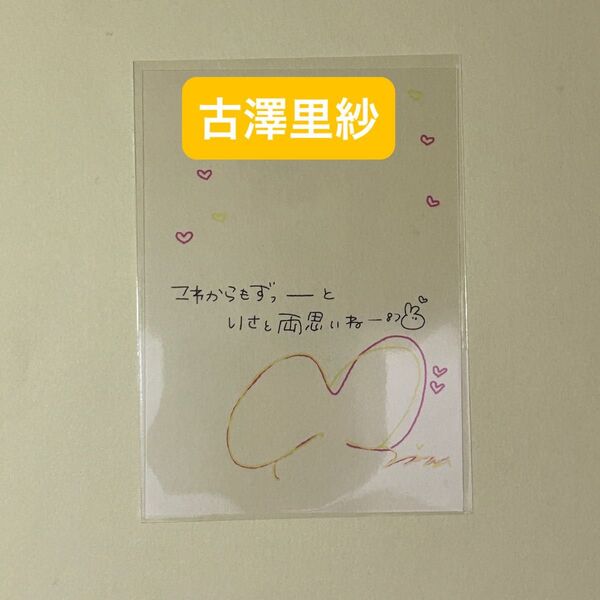 古澤里紗
これからもずっーと
りさと両思いねー